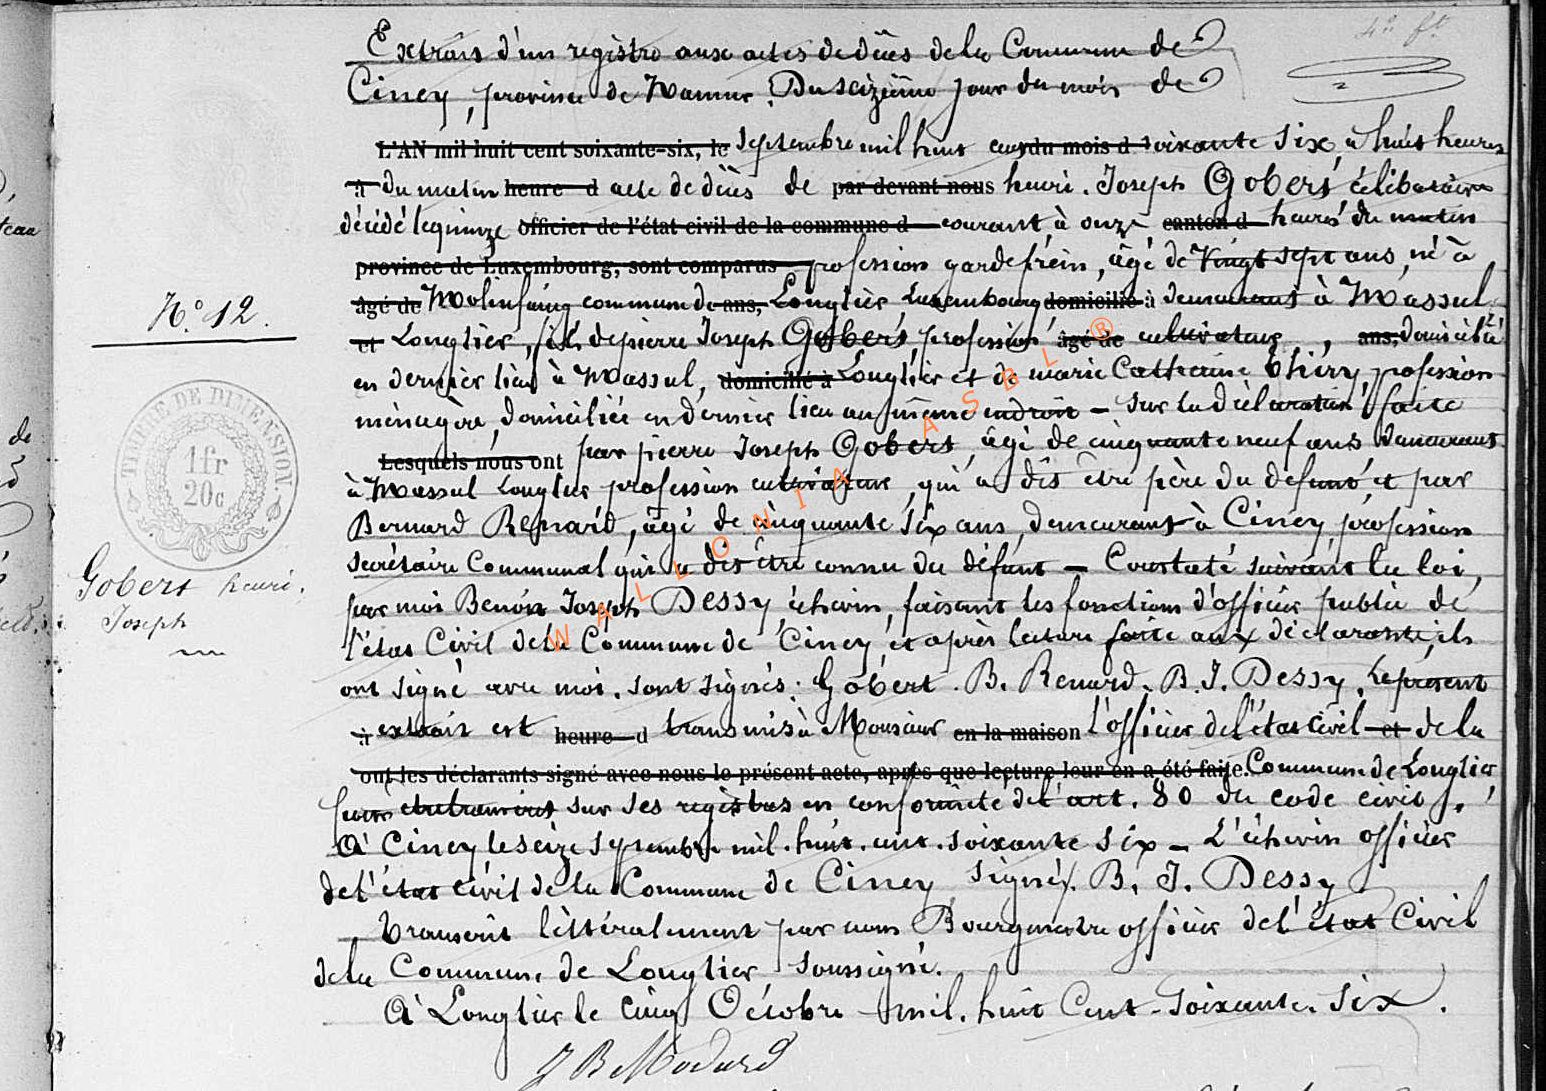 4e ft
Extrais d'un registre aux actes de décès de la Commune de
Ciney, province de Namur. Du seizième jour du mois de
L'AN mil huit cent soixante-six, le Septembre mil huit cent du mois d soixante six, à huit heures
à du matin heure d acte de décès de par devant nous henri. Joseph Gobert célibataire
décédé le quinze officier de l'état civil de la commune d courant, à onze canton d heures du matin
province de Luxembourg, sont comparus profession gardefrein, âgé de Vingt sept ans, né à
âgé de Molinfaing commune de ans, Longlier Luxembourg domicilié à demeurant à Massul
et Longlier, fils de pierre Joseph Gobert, profession âgé de cultivateur, ans, domicilié
en dernier lieu à Massul, domicilié à Longlier et de marie Catherine Thiry, profession
ménagère, domiciliée en dernier lieu au même endroit - sur la déclaration faite
Lesquels nous ont par pierre Joseph Gobert, âgé de cinquante neuf ans, demeurant
à Massul Longlier profession cultivateur, qui a dit être père du defunt, et par
Bernard Renard, âgé de cinquante six ans, demeurant à Ciney, profession
secrétaire Communal qui a dit être connu du défunt - Constaté suivant la loi,
par moi Benoit Joseph Dessy, échevin, faisant les fonctions d'officier public de
l'état Civil de la Commune de Ciney, et après lecture faite aux déclarants, ils
ont signé avec moi. sont signés: Gobert. B. Renard. B. J. Dessy. Le présent
à extrait est heure d transmis à Monsieur en la maison l'officier de l'état civil et de la
ont les déclarants signé avec nous le présent acte, après que lecture leur en a été faite. Commune de Longlier,
pour sur ses registres en conformité de l'art. 80 du code civil.
A Ciney le seize septembre mil. huit. cent. soixante six - L'échevin officier
de l'état civil de la Commune de Ciney signé/. B. J. Dessy
Transcrit littéralement par nous Bourgmestre officier de l'état Civil
de la Commune de Longlier soussigné.
A Longlier le Cinq Octobre mil. huit Cent. Soixante. Six.
J B Modard
N° 12.
TIMBRE DE DIMENSION
1 fr
20c
Gobert henri.
Joseph
WALLONIA ASBL ®